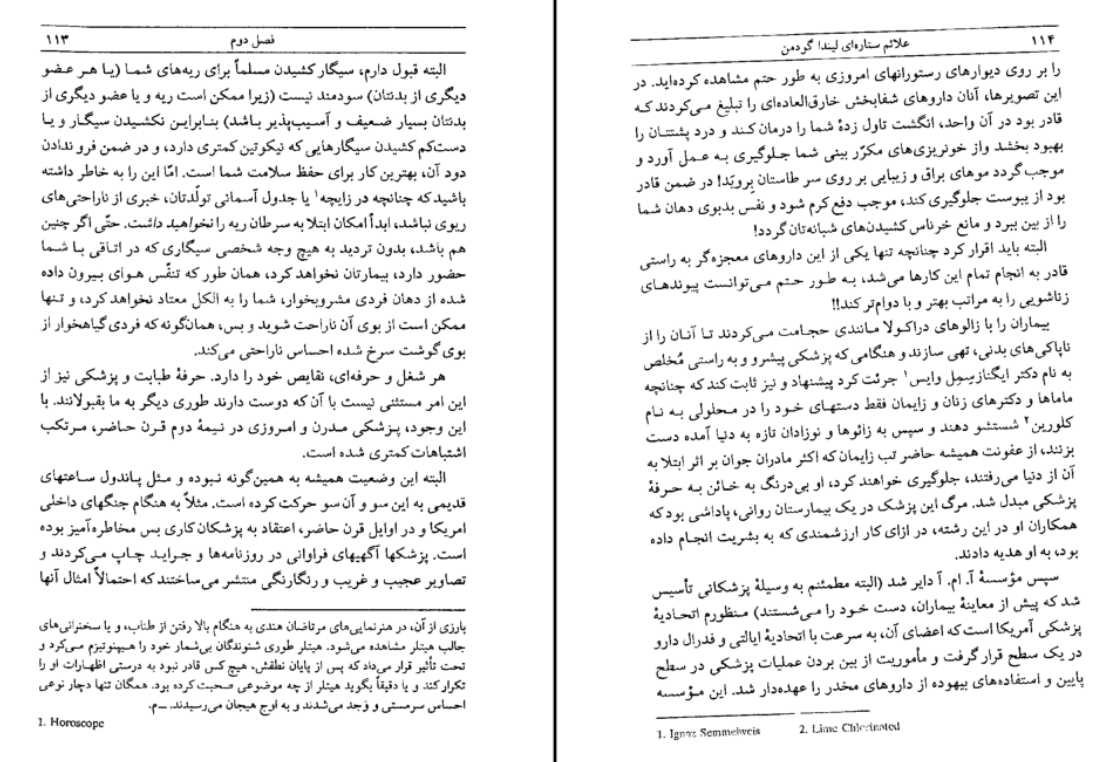 فصل دوم ۱۱۳
البته قبول دارم، سیگار کشیدن مسلماً برای ریه‌های شما (یا هر عضو
دیگری از بدنتان) سودمند نیست (زیرا ممکن است ریه و یا عضو دیگری از
بدنتان بسیار ضعیف و آسیب‌پذیر باشد) بنابراین نکشیدن سیگار و یا
دست‌کم کشیدن سیگارهایی که نیکوتین کمتری دارد، و در ضمن فرو ندادن
دود آن، بهترین کار برای حفظ سلامت شما است. امّا این را به خاطر داشته
باشید که چنانچه در زایچه۱ یا جدول آسمانی تولّدتان، خبری از ناراحتی‌های
ریوی نباشد، ابداً امکان ابتلا به سرطان ریه را نخواهید داشت. حتّی اگر چنین
هم باشد، بدون تردید به هیچ وجه شخصی سیگاری که در اتاقی با شما
حضور دارد، بیمارتان نخواهد کرد، همان طور که تنفّس هوای بیرون داده
شده از دهان فردی مشروبخوار، شما را به الکل معتاد نخواهد کرد، و تنها
ممکن است از بوی آن ناراحت شوید و بس، همان‌گونه که فردی گیاهخوار از
بوی گوشت سرخ شده احساس ناراحتی می‌کند.
هر شغل و حرفه‌ای، نقایص خود را دارد. حرفهٔ طبابت و پزشکی نیز از
این امر مستثنی نیست با آن‌که دوست دارند طوری دیگر به ما بقبولانند. با
این وجود، پزشکی مدرن و امروزی در نیمهٔ دوم قرن حاضر، مرتکب
اشتباهات کمتری شده است.
البته این وضعیت همیشه به همین‌گونه نبوده و مثل پاندول ساعتهای
قدیمی به این سو و آن سو حرکت کرده است. مثلاً به هنگام جنگهای داخلی
امریکا و در اوایل قرن حاضر، اعتقاد به پزشکان کاری بس مخاطره‌آمیز بوده
است. پزشکها آگهیهای فراوانی در روزنامه‌ها و جراید چاپ می‌کردند و
تصاویر عجیب و غریب و رنگارنگی منتشر می‌ساختند که احتمالاً امثال آنها
بارزی از آن، در هنرنمایی‌های مرتاضان هندی به هنگام بالا رفتن از طناب، و یا سخنرانی‌های
جالب هیتلر مشاهده می‌شود. هیتلر طوری شنوندگان بی‌شمار خود را هیپنوتیزم می‌کرد و
تحت تأثیر قرار می‌داد که پس از پایان نطقش، هیچ کس قادر نبود به درستی اظهارات او را
تکرار کند و یا دقیقاً بگوید هیتلر از چه موضوعی صحبت کرده بود. همگان تنها دچار نوعی
احساس سرمستی و وَجد می‌شدند و به اوج هیجان می‌رسیدند. ــ م.
1. Horoscope
۱۱۴ علائم ستاره‌ای لیندا گودمن
را بر روی دیوارهای رستورانهای امروزی به طور حتم مشاهده کرده‌اید. در
این تصویرها، آنان داروهای شفابخش خارق‌العاده‌ای را تبلیغ می‌کردند که
قادر بود در آن واحد، انگشت تاول زدهٔ شما را درمان کند و درد پشتتان را
بهبود بخشد و از خونریزی‌های مکرّر بینی شما جلوگیری به عمل آورد و
موجب گردد موهای براق و زیبایی بر روی سر طاستان بِرویَد! در ضمن قادر
بود از یبوست جلوگیری کند، موجب دفع کرم شود و نفَس بدبوی دهان شما
را از بین ببرد و مانع خرناس کشیدن‌های شبانه‌تان گردد!
البته باید اقرار کرد چنانچه تنها یکی از این داروهای معجزه‌گر به راستی
قادر به انجام تمام این کارها می‌شد، به طور حتم می‌توانست پیوندهای
زناشویی را به مراتب بهتر و با دوام‌تر کند!!
بیماران را با زالوهای دراکولا مانندی حجامت می‌کردند تا آنان را از
ناپاکی‌های بدنی، تهی سازند و هنگامی که پزشکی پیشرو و به راستی مُخلص
به نام دکتر ایگناز سِمِل وایس۱ جرئت کرد پیشنهاد و نیز ثابت کند که چنانچه
ماماها و دکترهای زنان و زایمان فقط دستهای خود را در محلولی به نام
کلورین۲ شستشو دهند و سپس به زائوها و نوزادان تازه به دنیا آمده دست
بزنند، از عفونت همیشه حاضر تب زایمان که اکثر مادران جوان بر اثر ابتلا به
آن از دنیا می‌رفتند، جلوگیری خواهند کرد، او بی‌درنگ به خائن به حرفهٔ
پزشکی مبدل شد. مرگ این پزشک در یک بیمارستان روانی، پاداشی بود که
همکاران او در این رشته، در ازای کار ارزشمندی که به بشریت انجام داده
بود، به او هدیه دادند.
سپس مؤسسهٔ آ. ام. آ دایر شد (البته مطمئنم به وسیلهٔ پزشکانی تأسیس
شد که پیش از معاینهٔ بیماران، دست خود را می‌شستند) منظورم اتحادیهٔ
پزشکی آمریکا است که اعضای آن، به سرعت با اتحادیهٔ ایالتی و فدرال دارو
در یک سطح قرار گرفت و مأموریت از بین بردن عملیات پزشکی در سطح
پایین و استفاده‌های بیهوده از داروهای مخدر را عهده‌دار شد. این مؤسسه
1. Ignaz Semmelweis 2. Lime Chlorinated